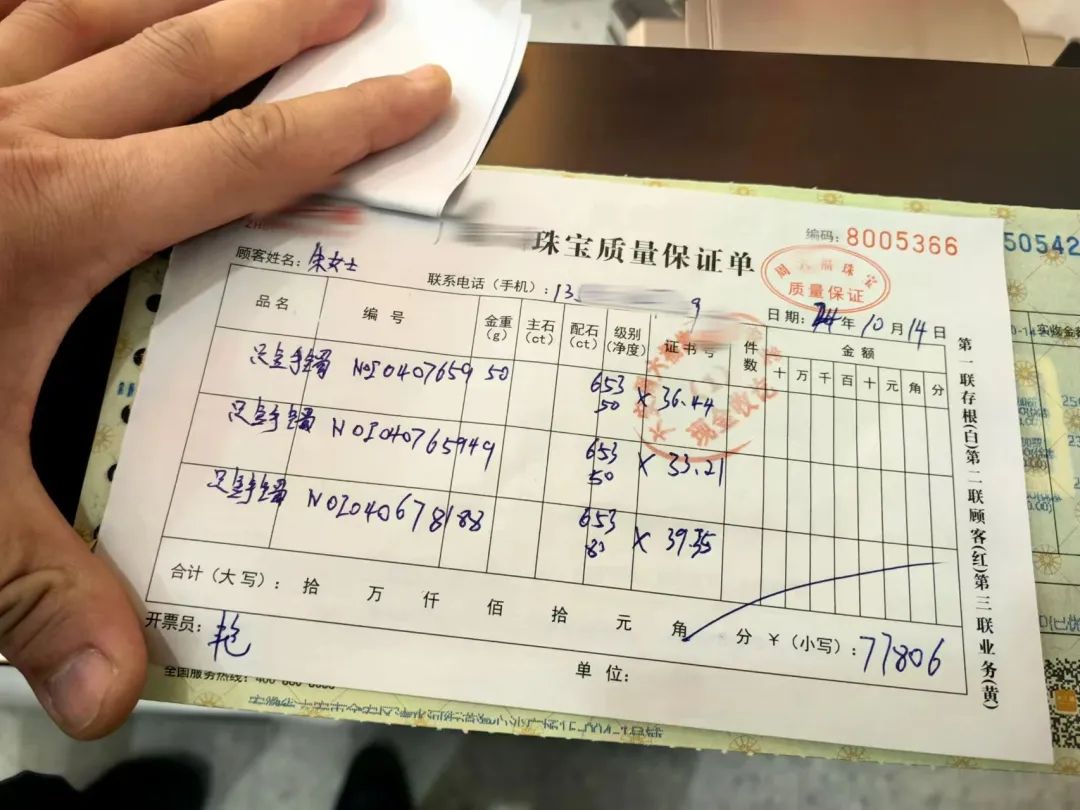 珠宝质量保证单
编码: 8005366
50542
顾客姓名: 朱女士
联系电话（手机）: 13 9
质量保证
日期: 24年10月14日
品名 编号 金重(g) 主石(ct) 配石(ct) 级别(净度) 证书号 件数 金额
十 万 千 百 十 元 角 分
足金手镯 NO10407659 50 653 50 × 36.44
足金手镯 NO1040765949 653 50 × 33.21
足金手镯 NO1040678188 653 80 × 39.35
现金收讫
合计（大写）: 拾 万 仟 佰 拾 元 角 分 ¥（小写）: 77806
开票员: 艳
单位:
全国服务热线:
第一联存根(白)第二联顾客(红)第三联业务(黄)
实收金额